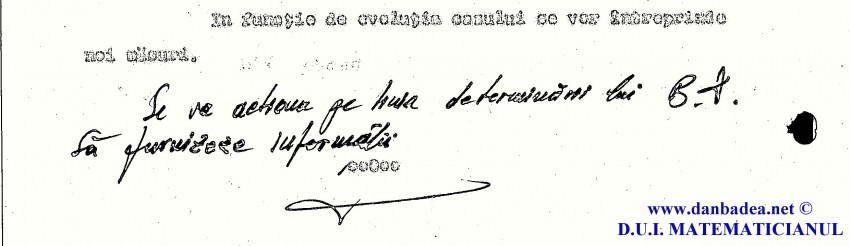 In funcţie de evoluţia cazului se vor întreprinde
noi măsuri.
Se va acţiona pe linia determinării lui B.I.
să furnizeze informaţii
ooOoo
www.danbadea.net ©
D.U.I. MATEMATICIANUL